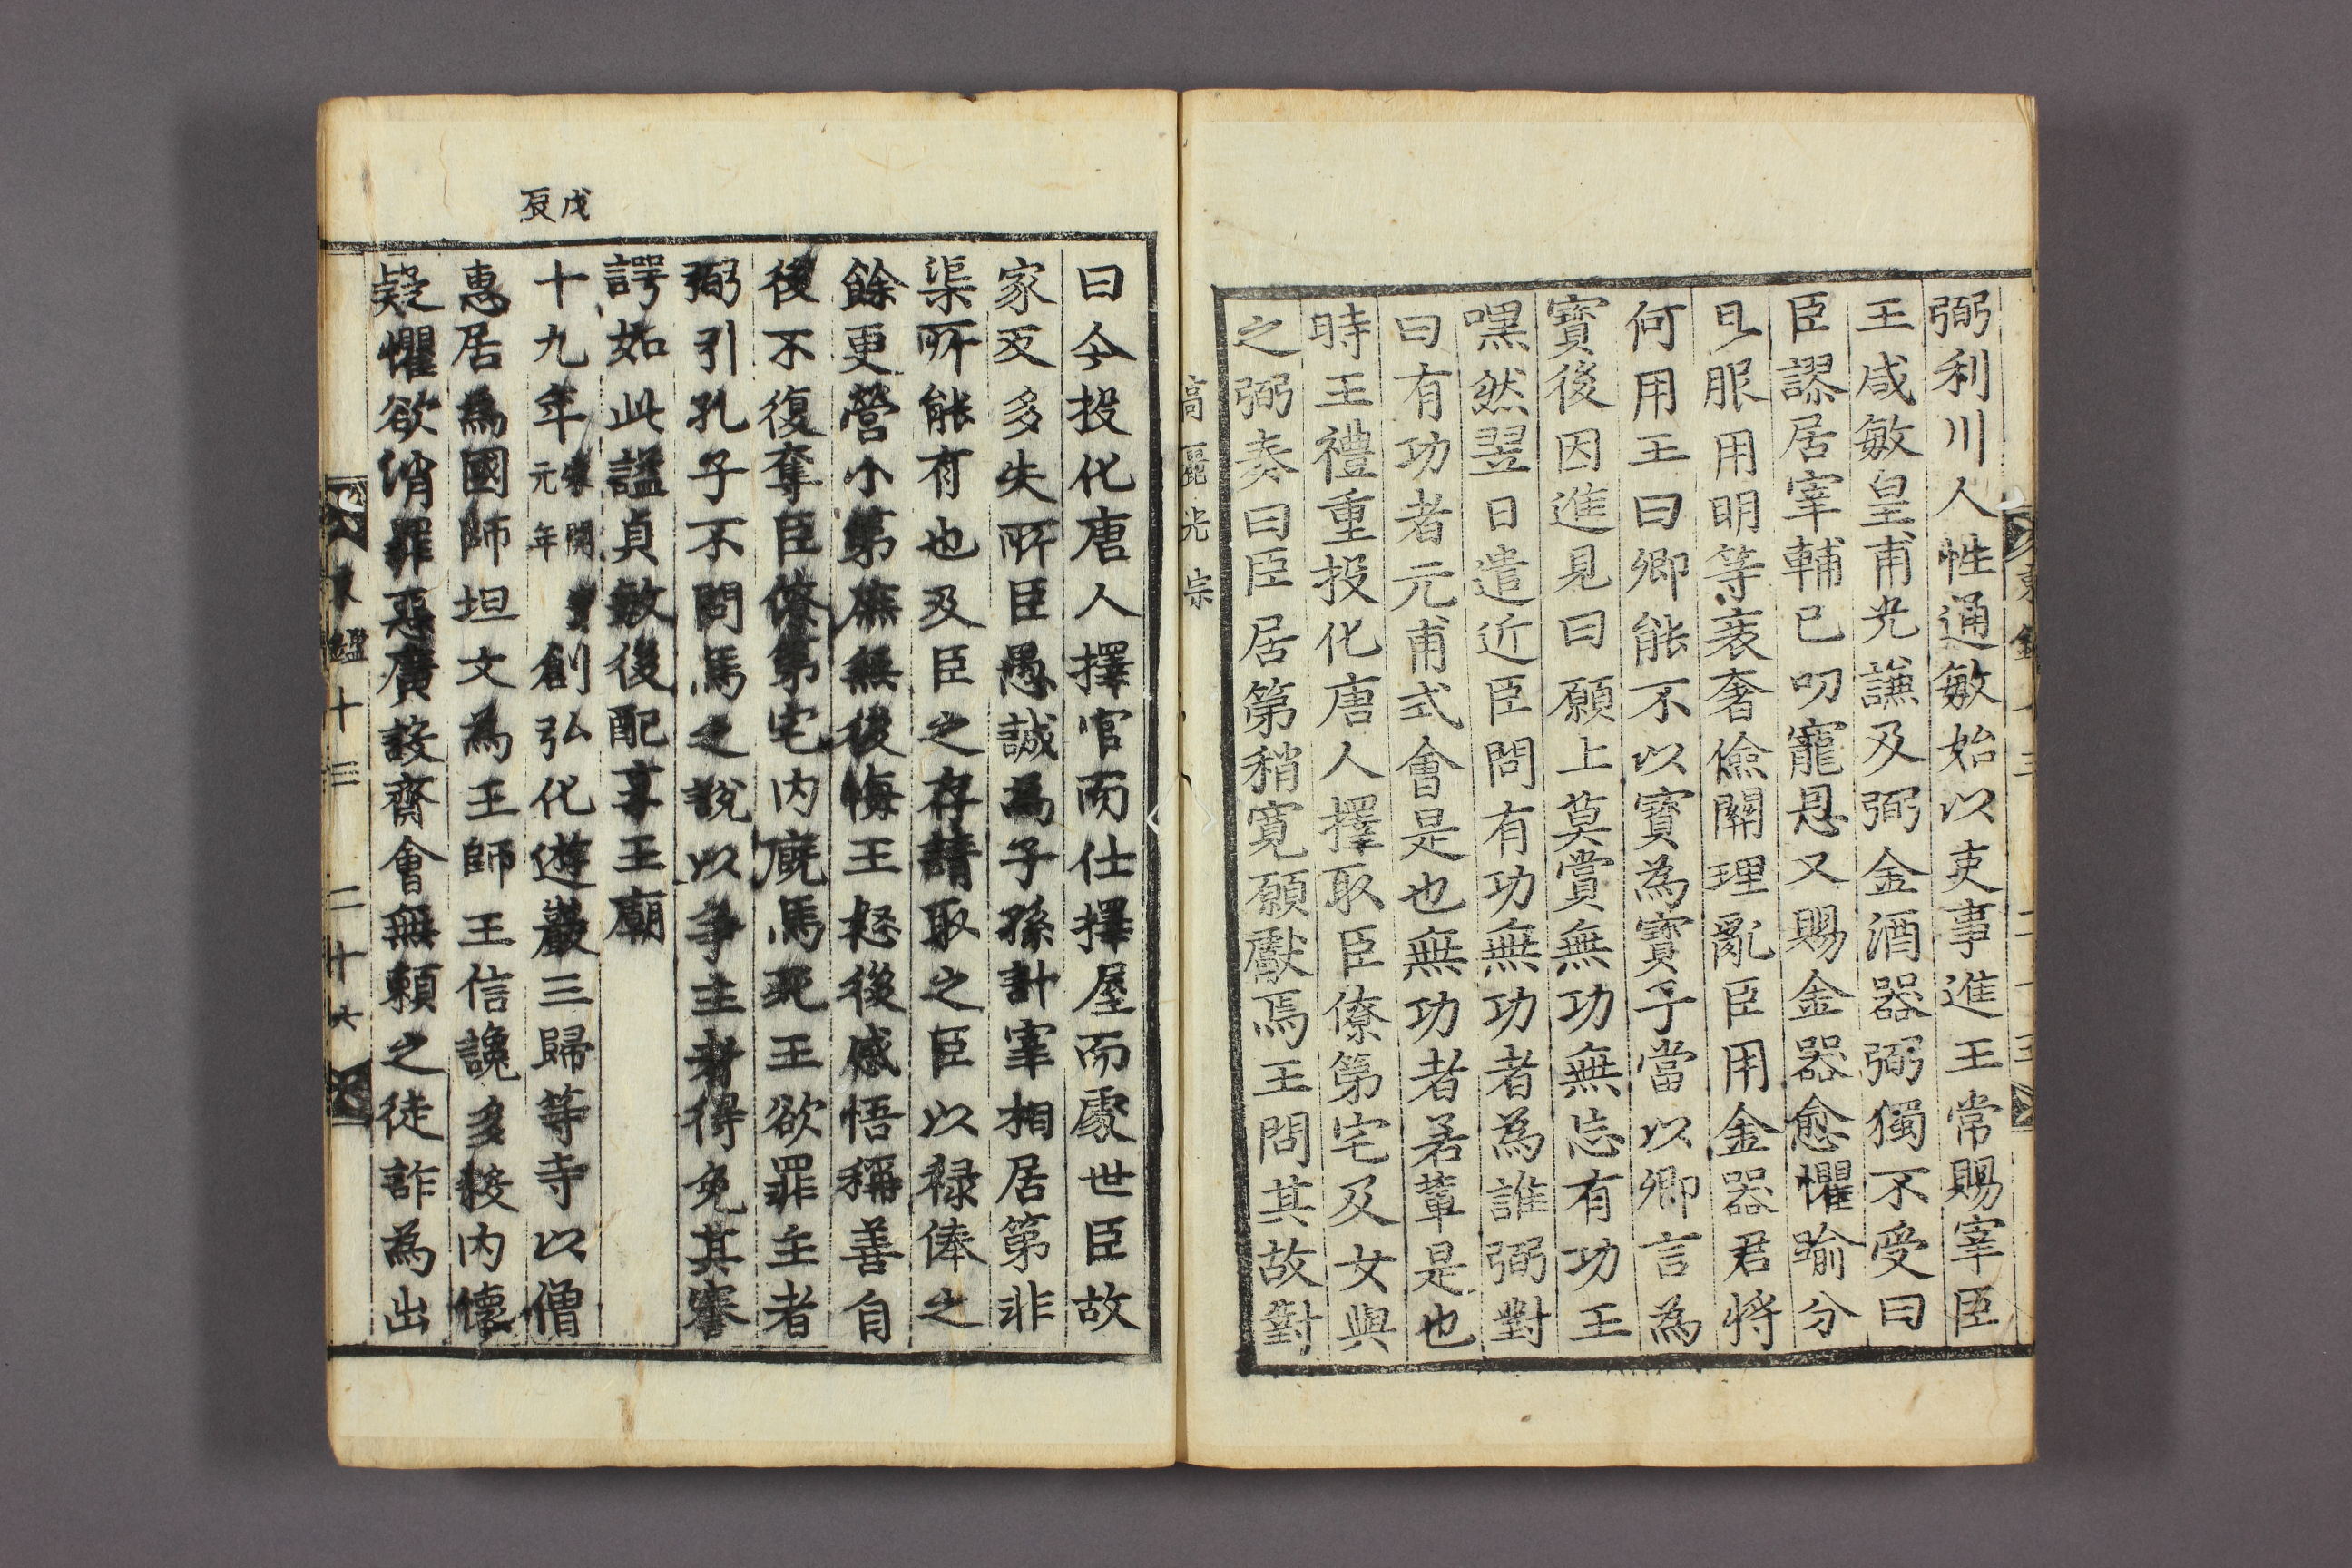 弼利川人性通敏始以吏事進王常賜宰臣
王咸敏皇甫光謙及弼金酒器弼獨不受曰
臣謬居宰輔已叨寵恩又賜金器愈懼踰分
且服用明等衰奢儉關理亂臣用金器君將
何用王曰卿能不以寶為寶予當以卿言為
寶後因進見曰願上莫賞無功無忘有功王
嘿然翌日遣近臣問有功無功者為誰弼對
曰有功者元甫式會是也無功者若輩是也
時王禮重投化唐人擇取臣僚第宅及女與
之弼奏曰臣居第稍寬願獻焉王問其故對
高麗光宗
曰今投化唐人擇官而仕擇屋而處世臣故
家反多失所臣愚誠為子孫計宰相居第非
渠所能有也及臣之存請取之臣以禄俸之
餘更營小第庶無後悔王怒後感悟稱善自
後不復奪臣僚第宅内廐馬死王欲罪主者
弼引孔子不問馬之說以爭主者得免其謇
諤如此謚貞敏後配享王廟
戊辰
十九年宋開寶元年創弘化遊巖三歸等寺以僧
惠居為國師坦文為王師王信讒多殺内懷
疑懼欲消罪惡廣設齋會無賴之徒詐為出
東鑑十三 二十六